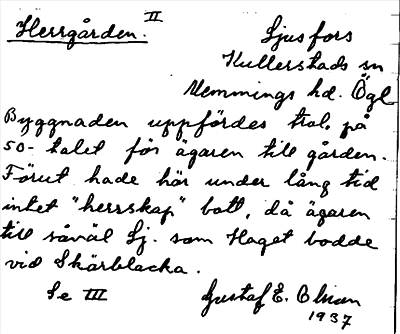 Herrgården. II
Ljusfors
Kullerstads sn
Memmings hd. Ögl
Byggnaden uppfördes trol. på
50-talet för ägaren till gården.
Förut hade här under lång tid
intet "herrskap" bott, då ägaren
till såväl Lj. som Haget bodde
vid Skärblacka.
Se III
Gustaf E. Olsson
1937